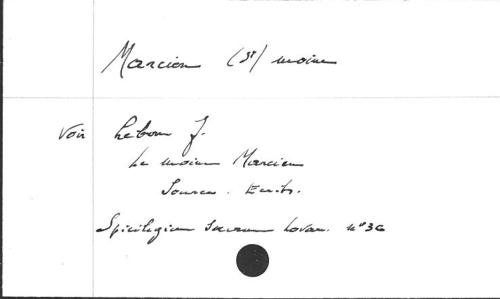 Marcien (St) moine
Voir Lebon J.
Le moine Marcien
Sources. Ecrits.
Spicilegium sacrum Lovan. n° 36